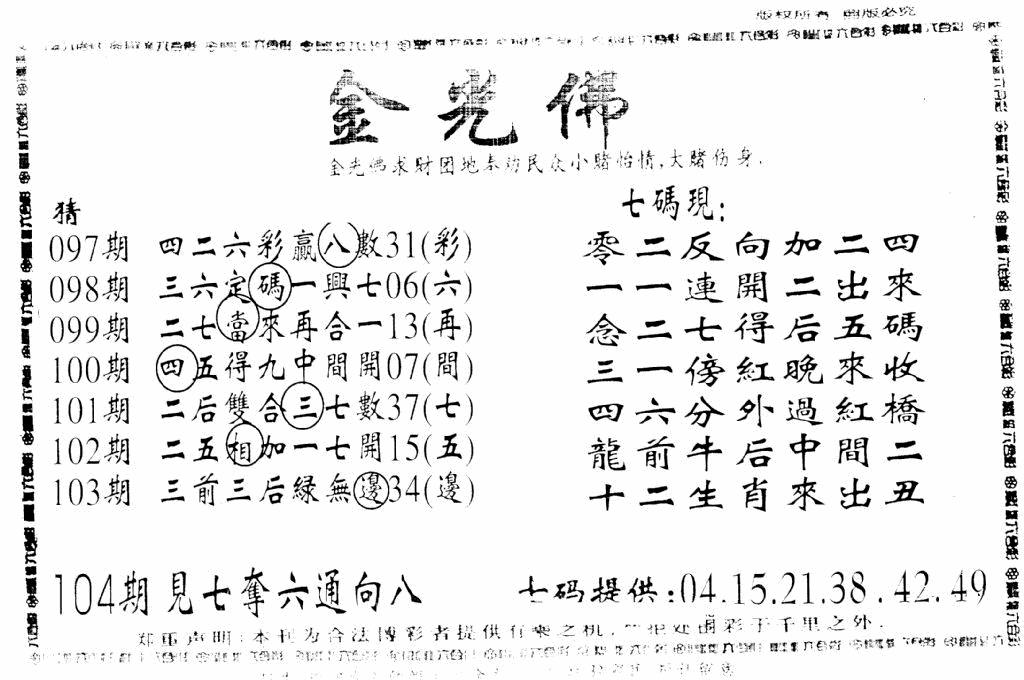 版权所有 翻版必究
金光佛
金光佛求财团地奉劝民众小赌怡情,大赌伤身.
猜
097期 四二六彩贏八數31(彩)
098期 三六定碼一興七06(六)
099期 二七當來再合一13(再)
100期 四五得九中間開07(間)
101期 二后雙合三七數37(七)
102期 二五相加一七開15(五)
103期 三前三后緑無邊34(邊)
七碼現:
零二反向加二四
一一連開二出來
念二七得后五碼
三一傍紅晚來收
四六分外過紅橋
龍前牛后中間二
十二生肖來出丑
104期 見七奪六通向八
七码提供:04.15.21.38.42.49
郑重声明:本刊为合法博彩者提供有乘之机,
彩于千里之外.